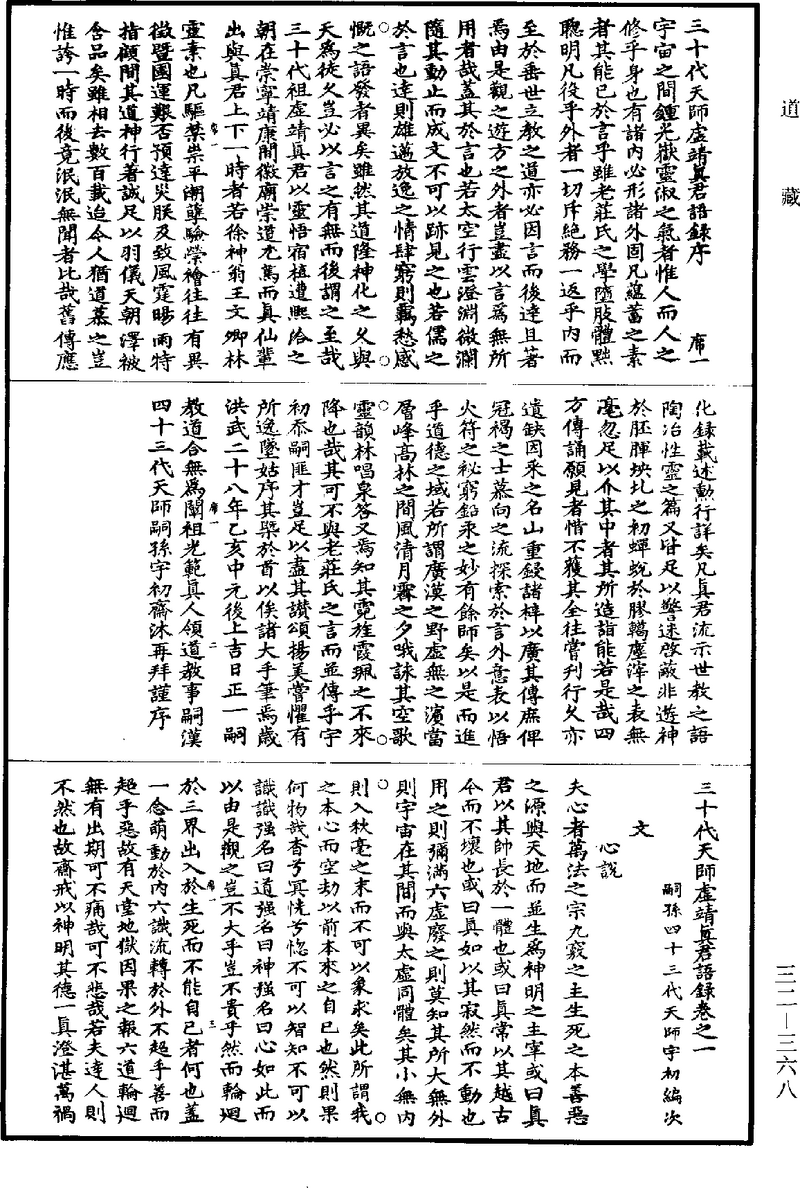 道藏
三十代天師虛靖真君語錄序 席一
宇宙之間鍾光嶽靈淑之氣者惟人而人之
修乎身也有諸內必形諸外固凡蘊蓄之素
者其能已於言乎雖老莊氏之學墮肢體黜
聰明凡役乎外者一切斥絕務一返乎內而
至於垂世立教之道亦必因言而後達且著
焉由是觀之遊方之外者豈盡以言為無所
用者哉蓋其於言也若太空行雲澄淵微瀾
隨其動止而成文不可以跡見之也若儒之
於言也達則雄邁放逸之情肆窮則羈愁感
慨之語發者異矣雖然其道隆神化之久與
天為徒久豈必以言之有無而後謂之至哉
三十代祖虛靖真君以靈悟宿植遭熙洽之
朝在崇寧靖康間徽廟崇道尤篤而真仙輩
出與真君上下一時者若徐神翁王文卿林
靈素也凡驅禁祟平潮孽驗禜禬往往有異
徵暨國運艱否預達災朕及致風霆暘雨特
指顧間其道神行著誠足以羽儀天朝澤被
含品矣雖相去數百載迨今人猶道慕之豈
惟誇一時而後竟泯泯無聞者比哉舊傳應
化錄載述勲行詳矣凡真君流示世教之語
陶冶性靈之篇又皆足以警迷啓蔽非遊神
於胚腪坱圠之初蟬蛻於膠轕塵滓之表無
毫忽足以介其中者其所造詣能若是哉四
方傳誦願見者惜不獲其全往嘗刊行久亦
遺缺因采之名山重鋟諸梓以廣其傳庶俾
冠褐之士慕向之流探索於言外意表以悟
火符之祕窮鉛汞之妙有餘師矣以是而進
乎道德之域若所謂廣漠之野虛無之濱當
層峰高林之間風清月霽之夕哦詠其空歌
靈韻林唱泉答又焉知其霓旌霞珮之不來
降也哉其可不與老莊氏之言而並傳乎宇
初忝嗣匪才豈足以盡其讚頌揚美嘗懼有
所逸墜姑序其槩於首以俟諸大手筆焉歲
洪武二十八年乙亥中元後上吉日正一嗣
教道合無為闡祖光範真人領道教事嗣漢
四十三代天師嗣孫宇初齋沐再拜謹序
三十代天師虛靖真君語錄卷之一
嗣孫四十三代天師宇初編次
文
心說
夫心者萬法之宗九竅之主生死之本善惡
之源與天地而並生為神明之主宰或曰真
君以其帥長於一體也或曰真常以其越古
今而不壞也或曰真如以其寂然而不動也
用之則彌滿六虛廢之則莫知其所大無外
則宇宙在其間而與太虛同體矣其小無內
則入秋毫之末而不可以象求矣此所謂我
之本心而空劫以前本來之自己也然則果
何物哉杳兮冥恍兮惚不可以智知不可以
識識强名曰道强名曰神强名曰心如此而
以由是觀之豈不大乎豈不貴乎然而輪廻
於三界出入於生死而不能自已者何也蓋
一念萌動於內六識流轉於外不趍乎善而
趍乎惡故有天堂地獄因果之報六道輪廻
無有出期可不痛哉可不悲哉若夫達人則
不然也故齋戒以神明其德一真澄湛萬禍
三二—三六八